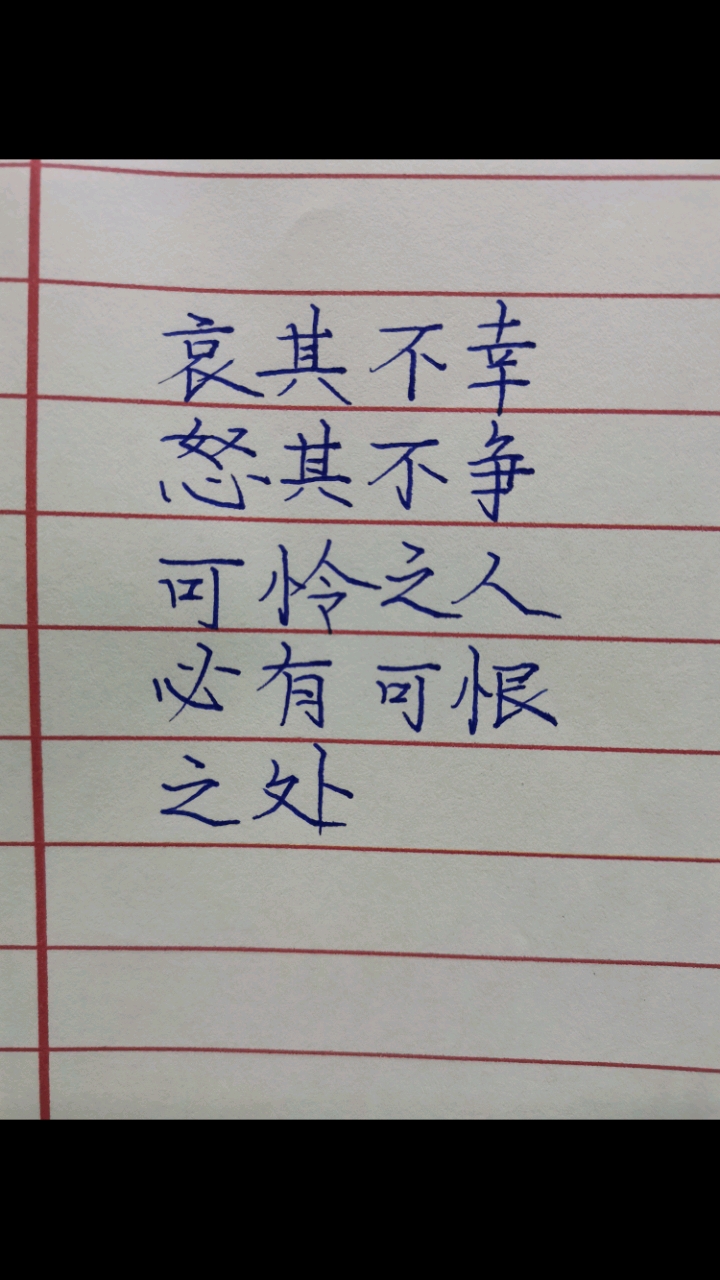 哀其不幸
怒其不争
可怜之人
必有可恨
之处